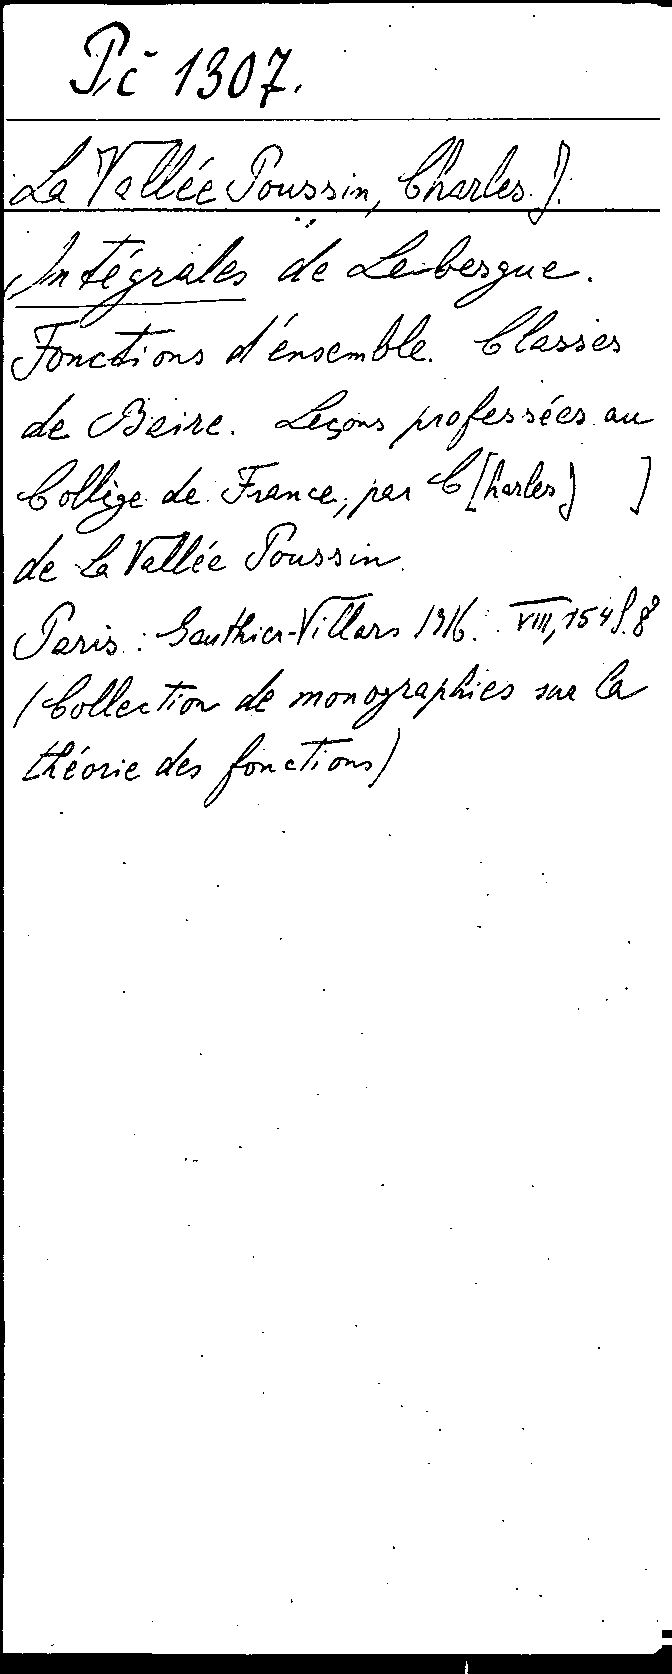 Pč 1307.
La Vallée Poussin, Charles J.
Intégrales de Lebesgue.
Fonctions d'ensemble. Classes
de Baire. Leçons professées au
Collège de France, par C[harles] ]
de la Vallée Poussin.
Paris: Gauthier-Villars 1916. VIII, 154 S. 8°
(Collection de monographies sur la
théorie des fonctions)